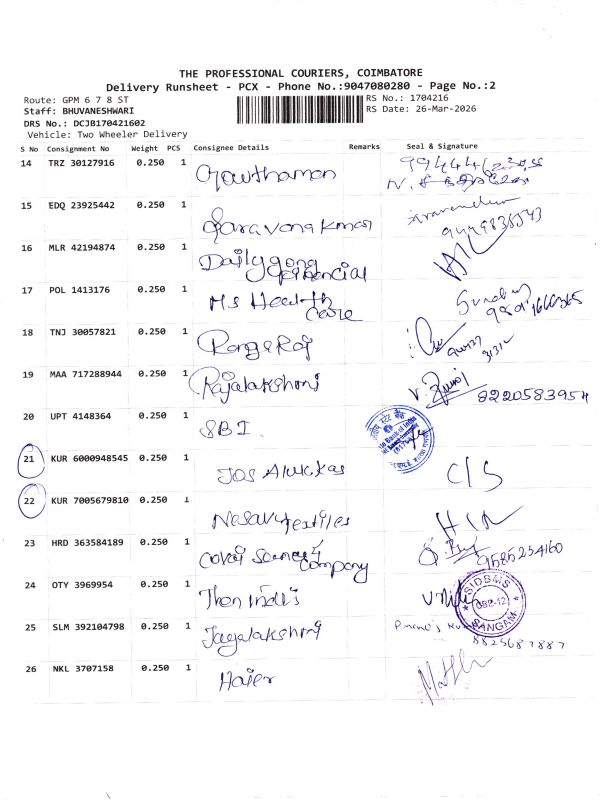 THE PROFESSIONAL COURIERS, COIMBATORE
Delivery Runsheet - PCX - Phone No.:9047080280 - Page No.:2
Route: GPM 6 7 8 ST
RS No.: 1704216
Staff: BHUVANESHWARI
RS Date: 26-Mar-2026
DRS No.: DCJB170421602
Vehicle: Two Wheeler Delivery
S No Consignment No Weight PCS Consignee Details Remarks Seal & Signature
14 TRZ 30127916 0.250 1 Gowthaman
15 EDQ 23925442 0.250 1 Saravanakumar
16 MLR 42194874 0.250 1 Dailygong
financial
17 POL 1413176 0.250 1 Ms Health
Care
18 TNJ 30057821 0.250 1 RangaRaj
19 MAA 717288944 0.250 1 Rajalakshmi 8220583954
20 UPT 4148364 0.250 1 SBI
21 KUR 6000948545 0.250 1 Jos Alukkas C/S
22 KUR 7005679810 0.250 1 Nesavu textiles
23 HRD 363584189 0.250 1 Covai Science
Company 9585254160
24 OTY 3969954 0.250 1 Thon Indi's
SIDBMS
SANGAM
25 SLM 392104798 0.250 1 Jayalakshmi
8825687887
26 NKL 3707158 0.250 1 Haier